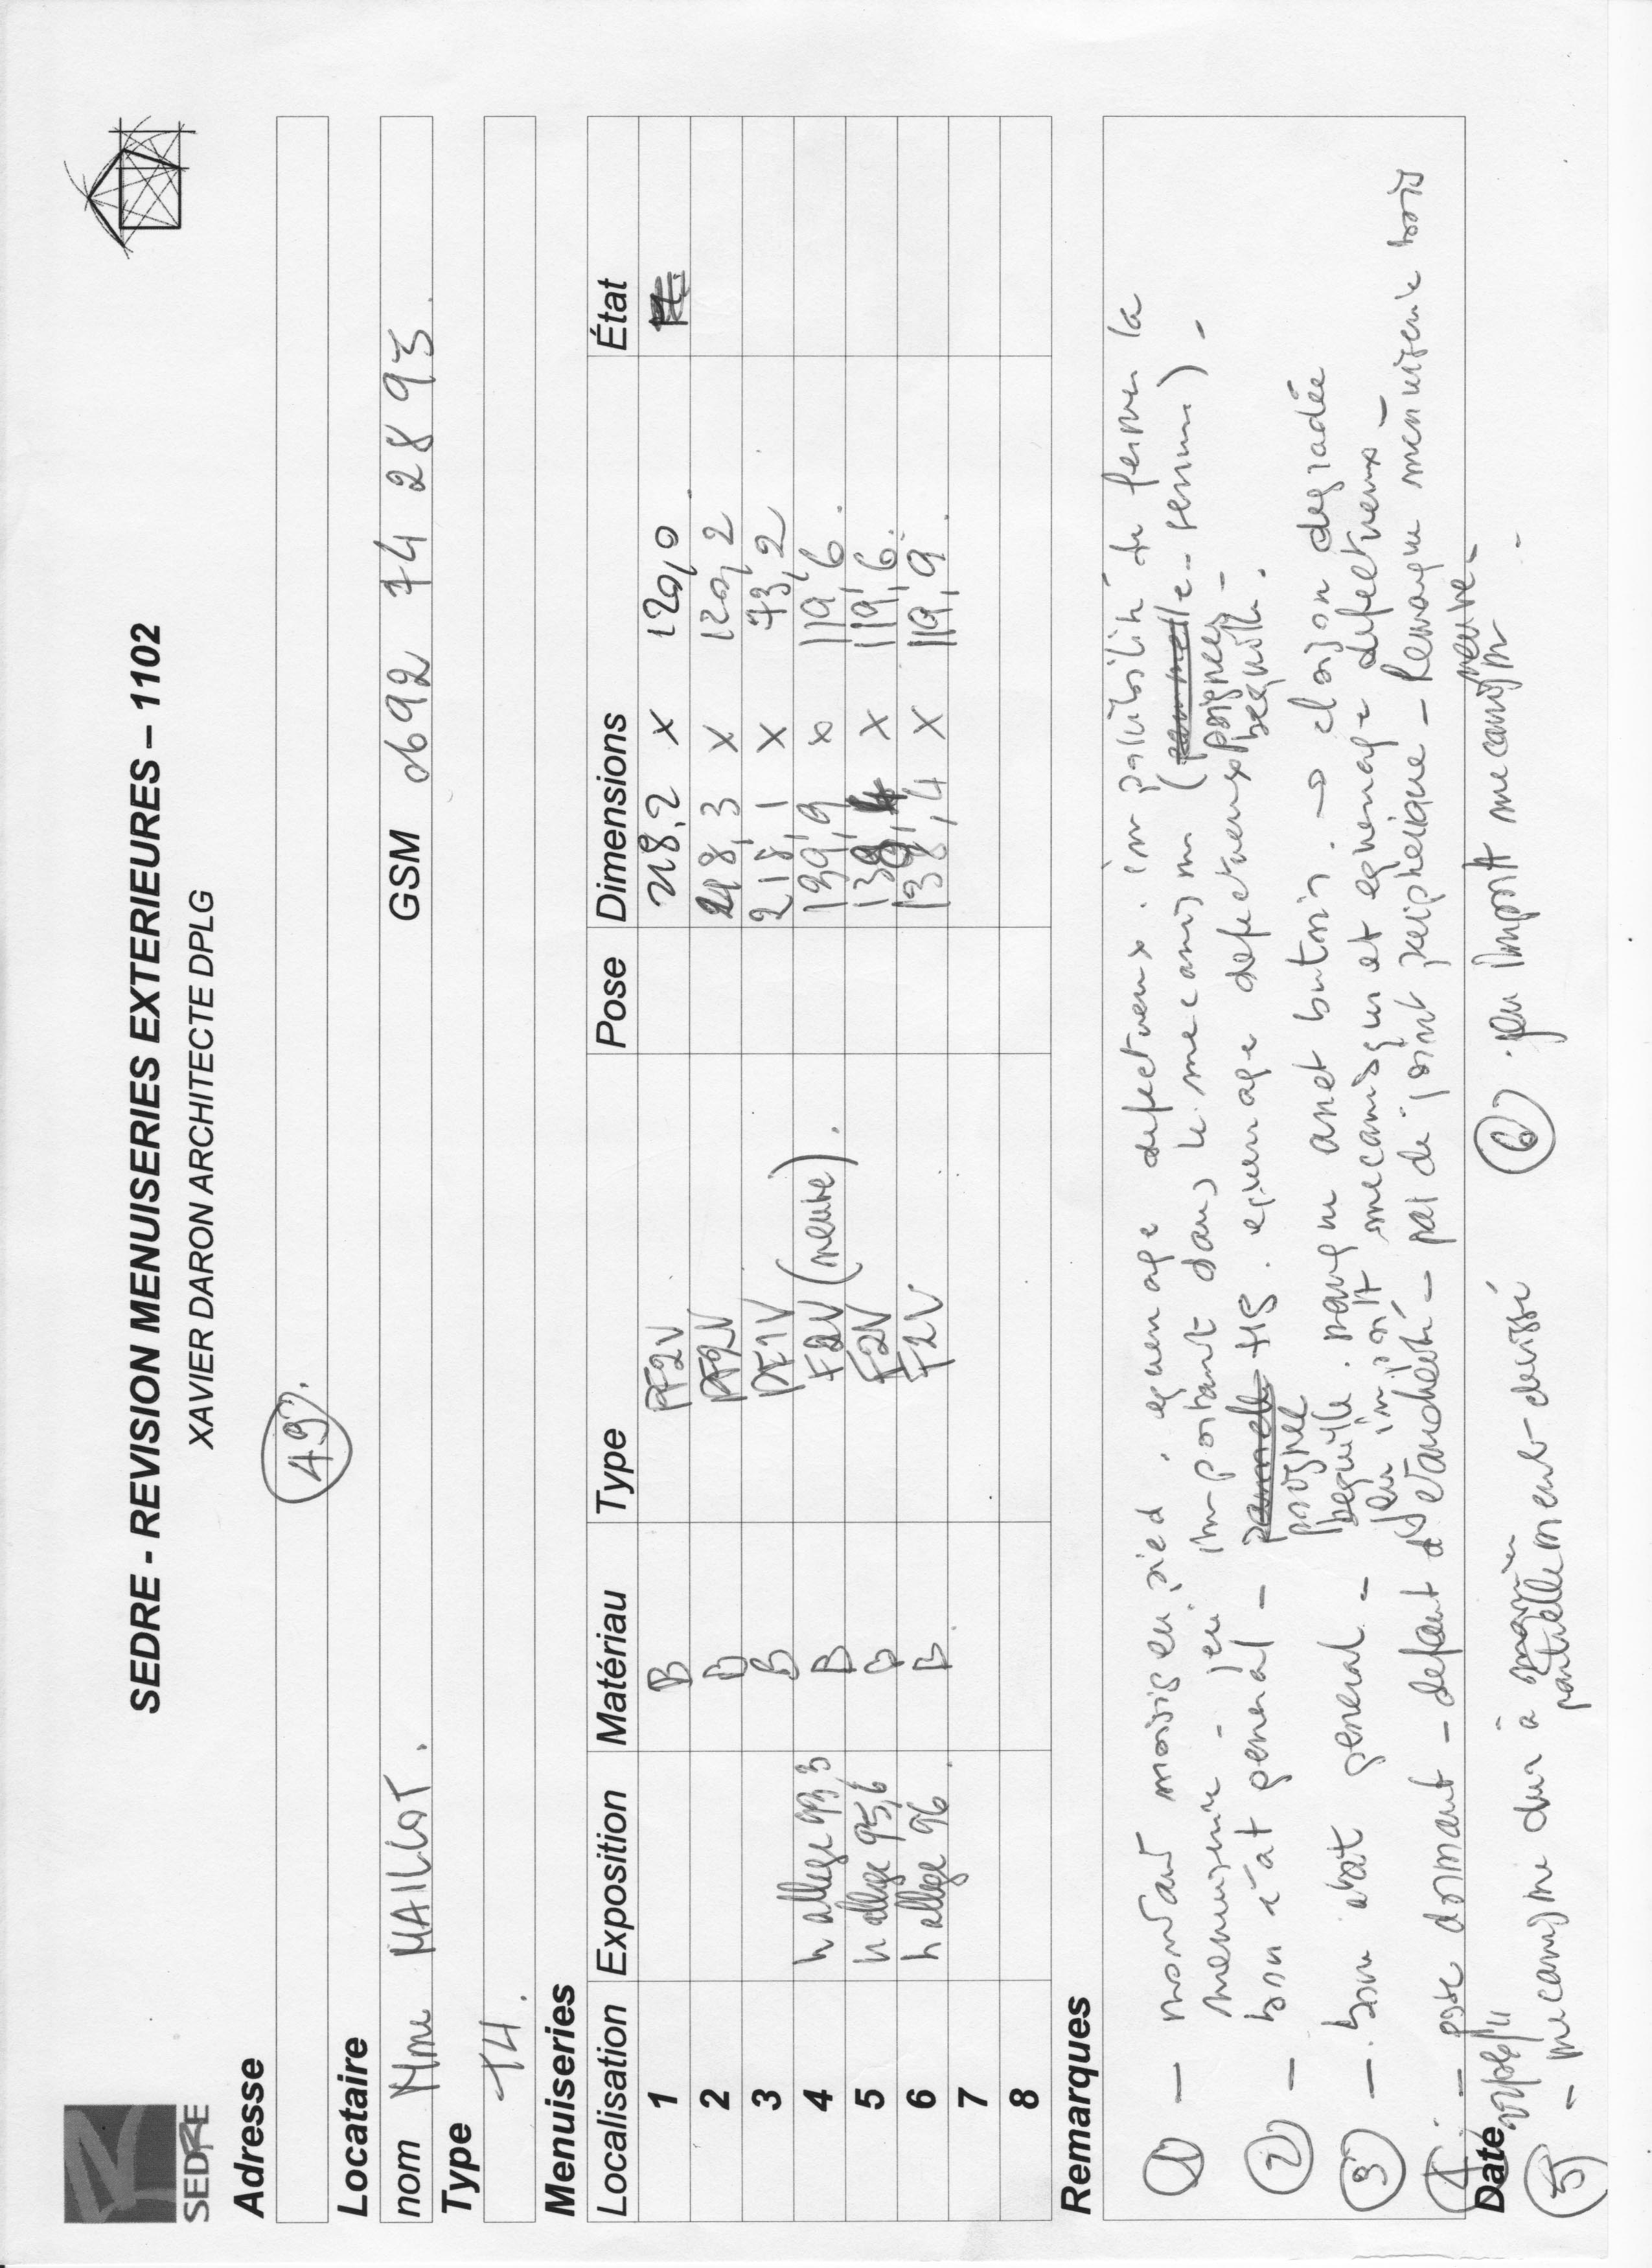 SEDRE
SEDRE - REVISION MENUISERIES EXTERIEURES – 1102
XAVIER DARON ARCHITECTE DPLG
Adresse
49
Locataire
nom Mme MAILLOT. GSM 0692 74 28 93
Type
T4.
Menuiseries
Localisation Exposition Matériau Type Pose Dimensions État
1 B PF2V 218,2 x 120,0
2 B PF2V 218,3 x 120,2
3 B PF1V 218,1 x 73,2
4 h allege 93,3 B F2V (neuve). 139,9 x 119,6.
5 h allege 95,6 B F2V 138,4 x 119,6.
6 h allege 96 B F2V 138,4 x 119,9.
7
8
Remarques
1 — montant moisis en pied. equerrage defectueux. impossibilité de fermer la
menuiserie - jeu important dans le mecanisme (poignee - serrure) -
2 — bon état general - poignee bequille HS. equerrage defectueux
3 — bon état general - bequille. manque arret butoir. → cloison degradée
jeu important mecanisme et equerrage defectueux -
4 — pose dormant - defaut d'étanchéité - pas de joint peripherique - Remarque menuiserie bois neuve -
Date
5 - mecanisme dur à partiellement devissé
6 . jeu import mecanisme -